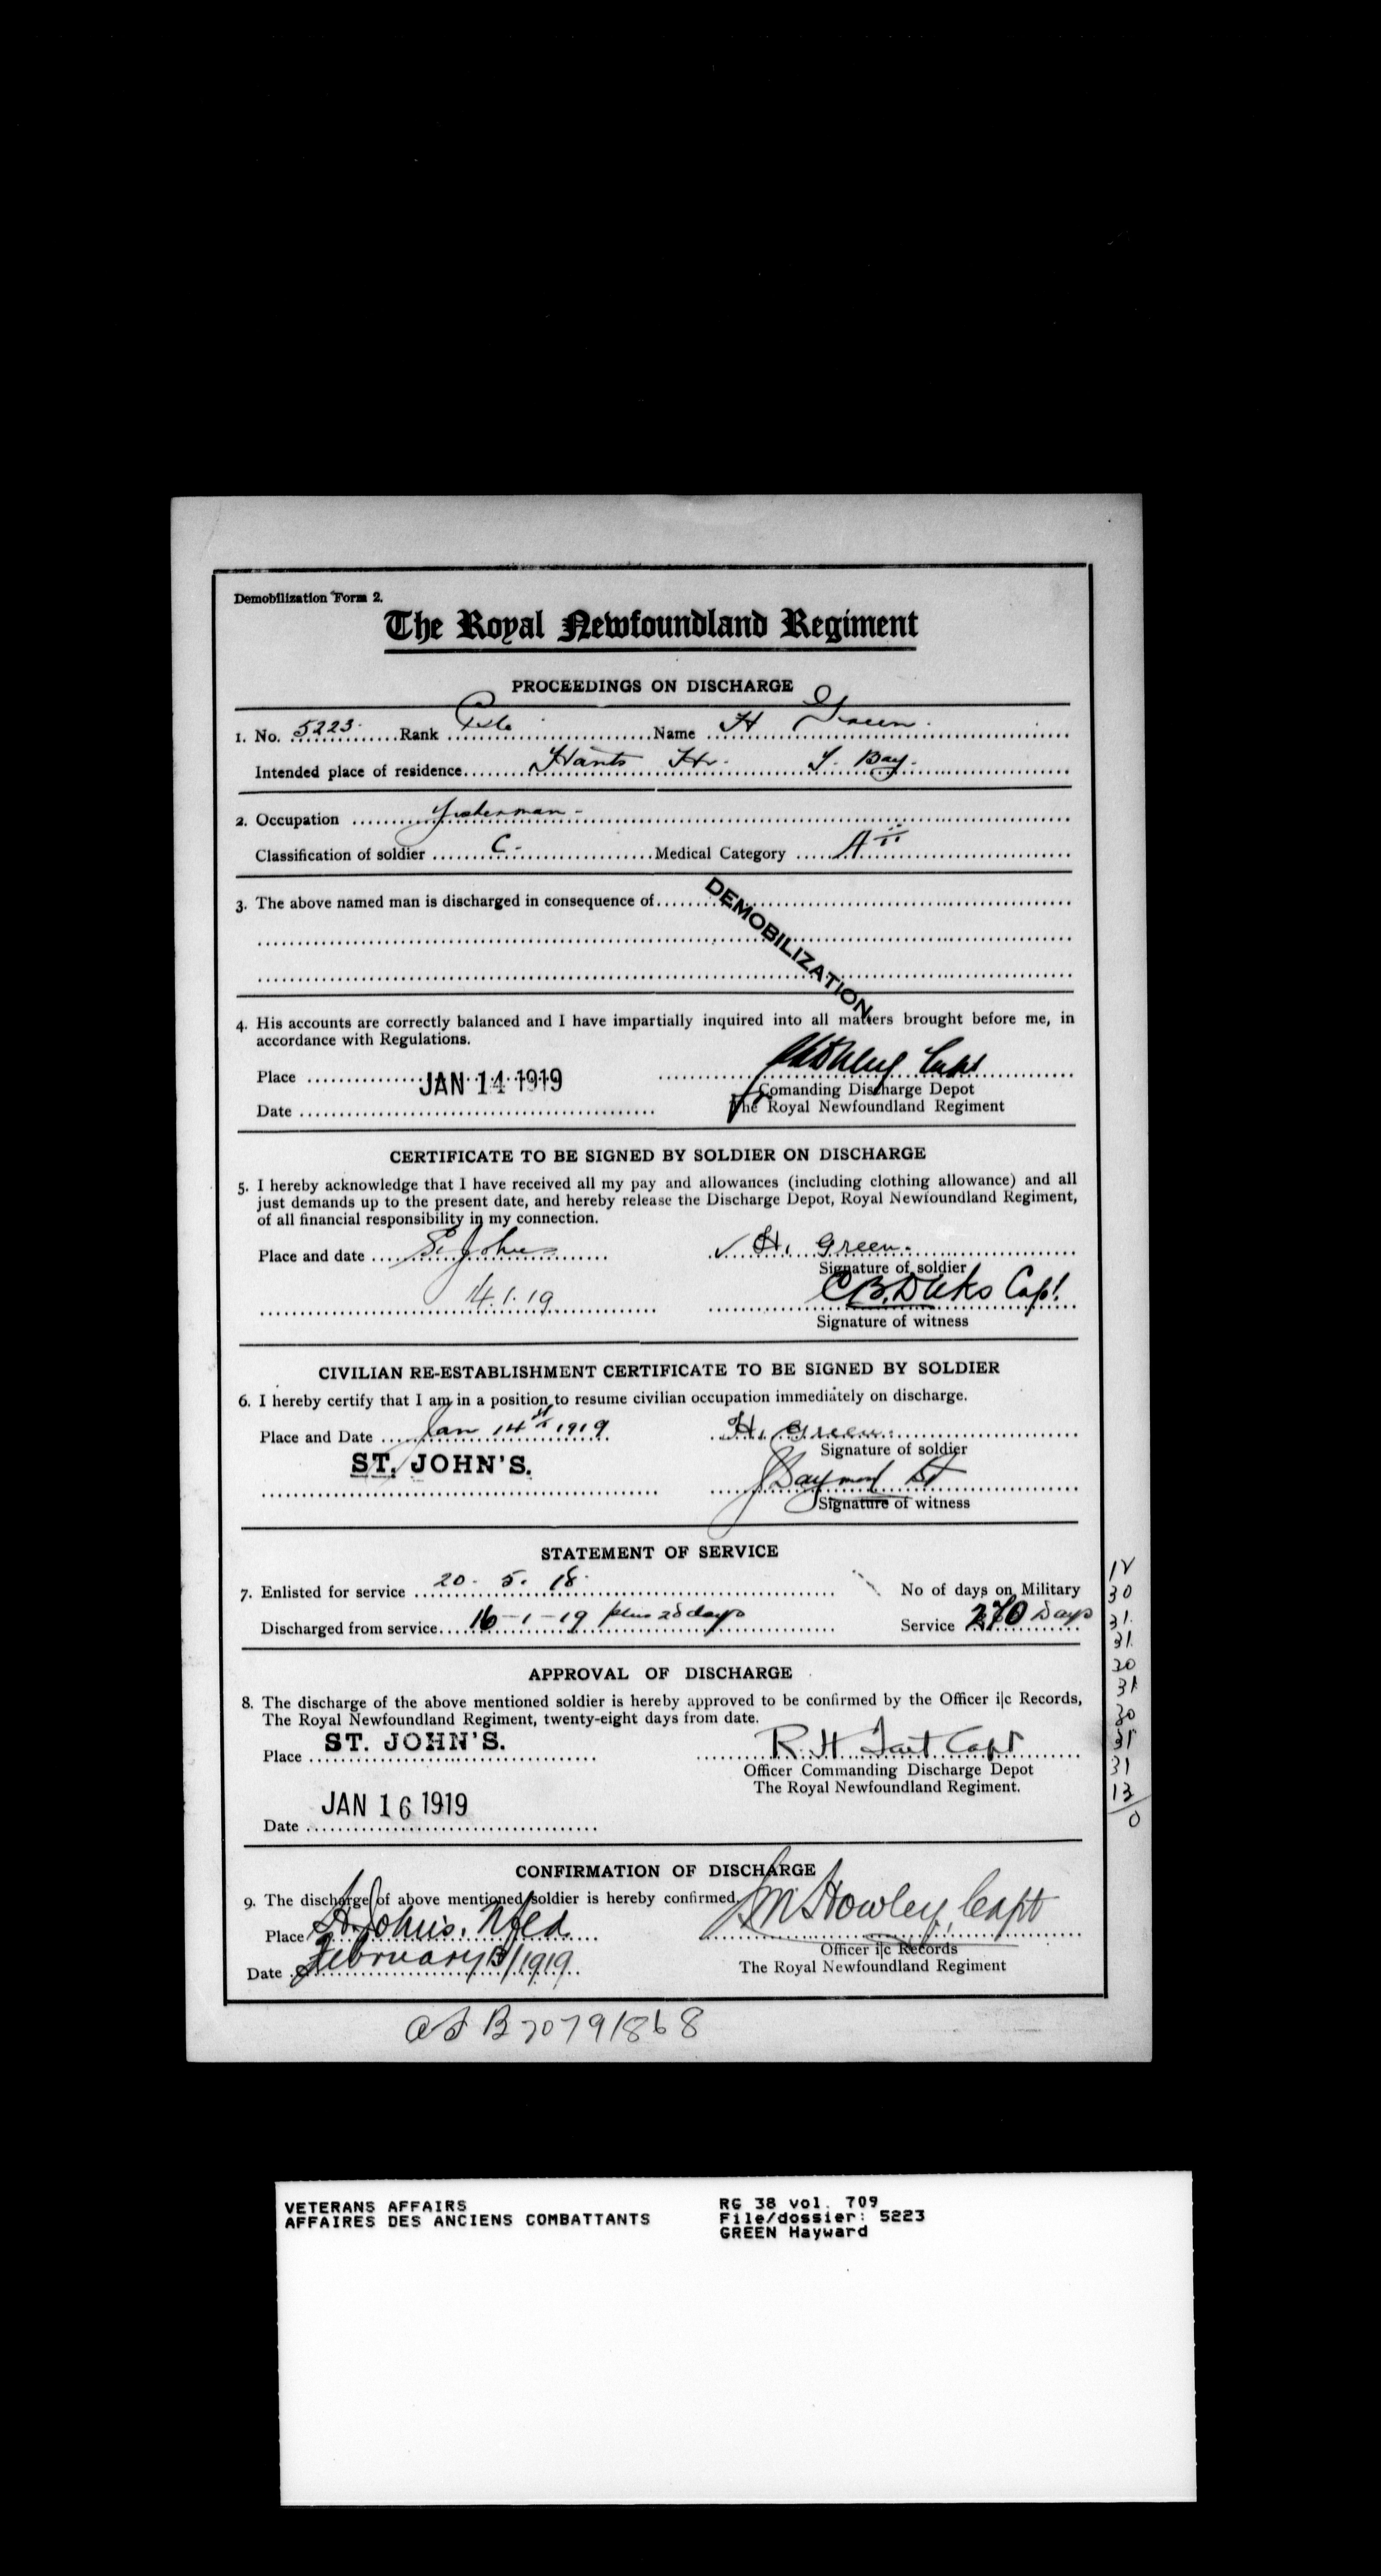 Demobilization Form 2.
The Royal Newfoundland Regiment
PROCEEDINGS ON DISCHARGE
1. No. 5223. Rank Pte Name H Green.
Intended place of residence Hants Hr. T. Bay.
2. Occupation Fisherman -
Classification of soldier C. Medical Category A II
3. The above named man is discharged in consequence of
DEMOBILIZATION
4. His accounts are correctly balanced and I have impartially inquired into all matters brought before me, in
accordance with Regulations.
Place
JAN 14 1919
Capt
Date
for
Comanding Discharge Depot
The Royal Newfoundland Regiment
CERTIFICATE TO BE SIGNED BY SOLDIER ON DISCHARGE
5. I hereby acknowledge that I have received all my pay and allowances (including clothing allowance) and all
just demands up to the present date, and hereby release the Discharge Depot, Royal Newfoundland Regiment,
of all financial responsibility in my connection.
Place and date St Johns H. Green.
Signature of soldier
14.1.19 C.B. Dicks Capt.
Signature of witness
CIVILIAN RE-ESTABLISHMENT CERTIFICATE TO BE SIGNED BY SOLDIER
6. I hereby certify that I am in a position to resume civilian occupation immediately on discharge.
Place and Date Jan 14th 1919 H. Green.
Signature of soldier
ST. JOHN'S.
Signature of witness
STATEMENT OF SERVICE
7. Enlisted for service 20. 5. 18. No of days on Military
Discharged from service 16-1-19 plus 28 days Service 270 Days
12
30
31.
31.
30
31
30
31
31
13
0
APPROVAL OF DISCHARGE
8. The discharge of the above mentioned soldier is hereby approved to be confirmed by the Officer i|c Records,
The Royal Newfoundland Regiment, twenty-eight days from date.
Place ST. JOHN'S. R. H. Tait Capt
Officer Commanding Discharge Depot
The Royal Newfoundland Regiment.
Date JAN 16 1919
CONFIRMATION OF DISCHARGE
9. The discharge of above mentioned soldier is hereby confirmed.
Place St. John's. Nfld. M Howley, Capt
Officer i|c Records
Date February 13/1919
The Royal Newfoundland Regiment
B2079/868
VETERANS AFFAIRS
AFFAIRES DES ANCIENS COMBATTANTS
RG 38 vol. 709
File/dossier: 5223
GREEN Hayward